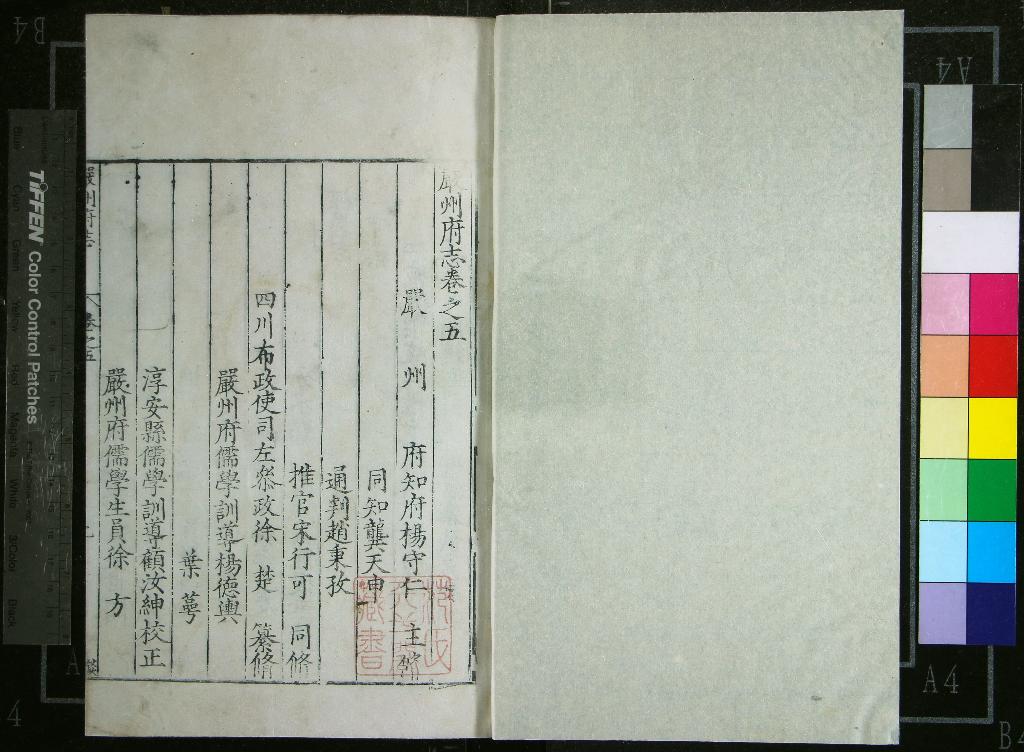 嚴州府志卷之五
嚴州府知府楊守仁主修
同知龔天申
通判趙秉孜
推官宋行可同修
四川布政使司左叅政徐楚纂修
嚴州府儒學訓導楊德輿
葉蕚
淳安縣儒學訓導顧汝紳校正
嚴州府儒學生員徐方
嚴州府志
卷之五
藏書
TIFFEN Color Control Patches
A4
A4
B4